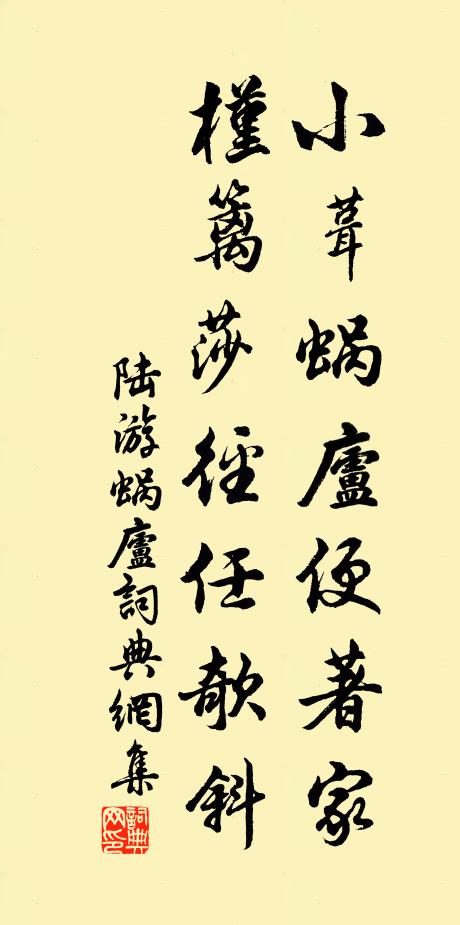 小葺蝸廬便著家
槿籬莎徑任欹斜
陸游蝸廬詞典網集
詞典網印